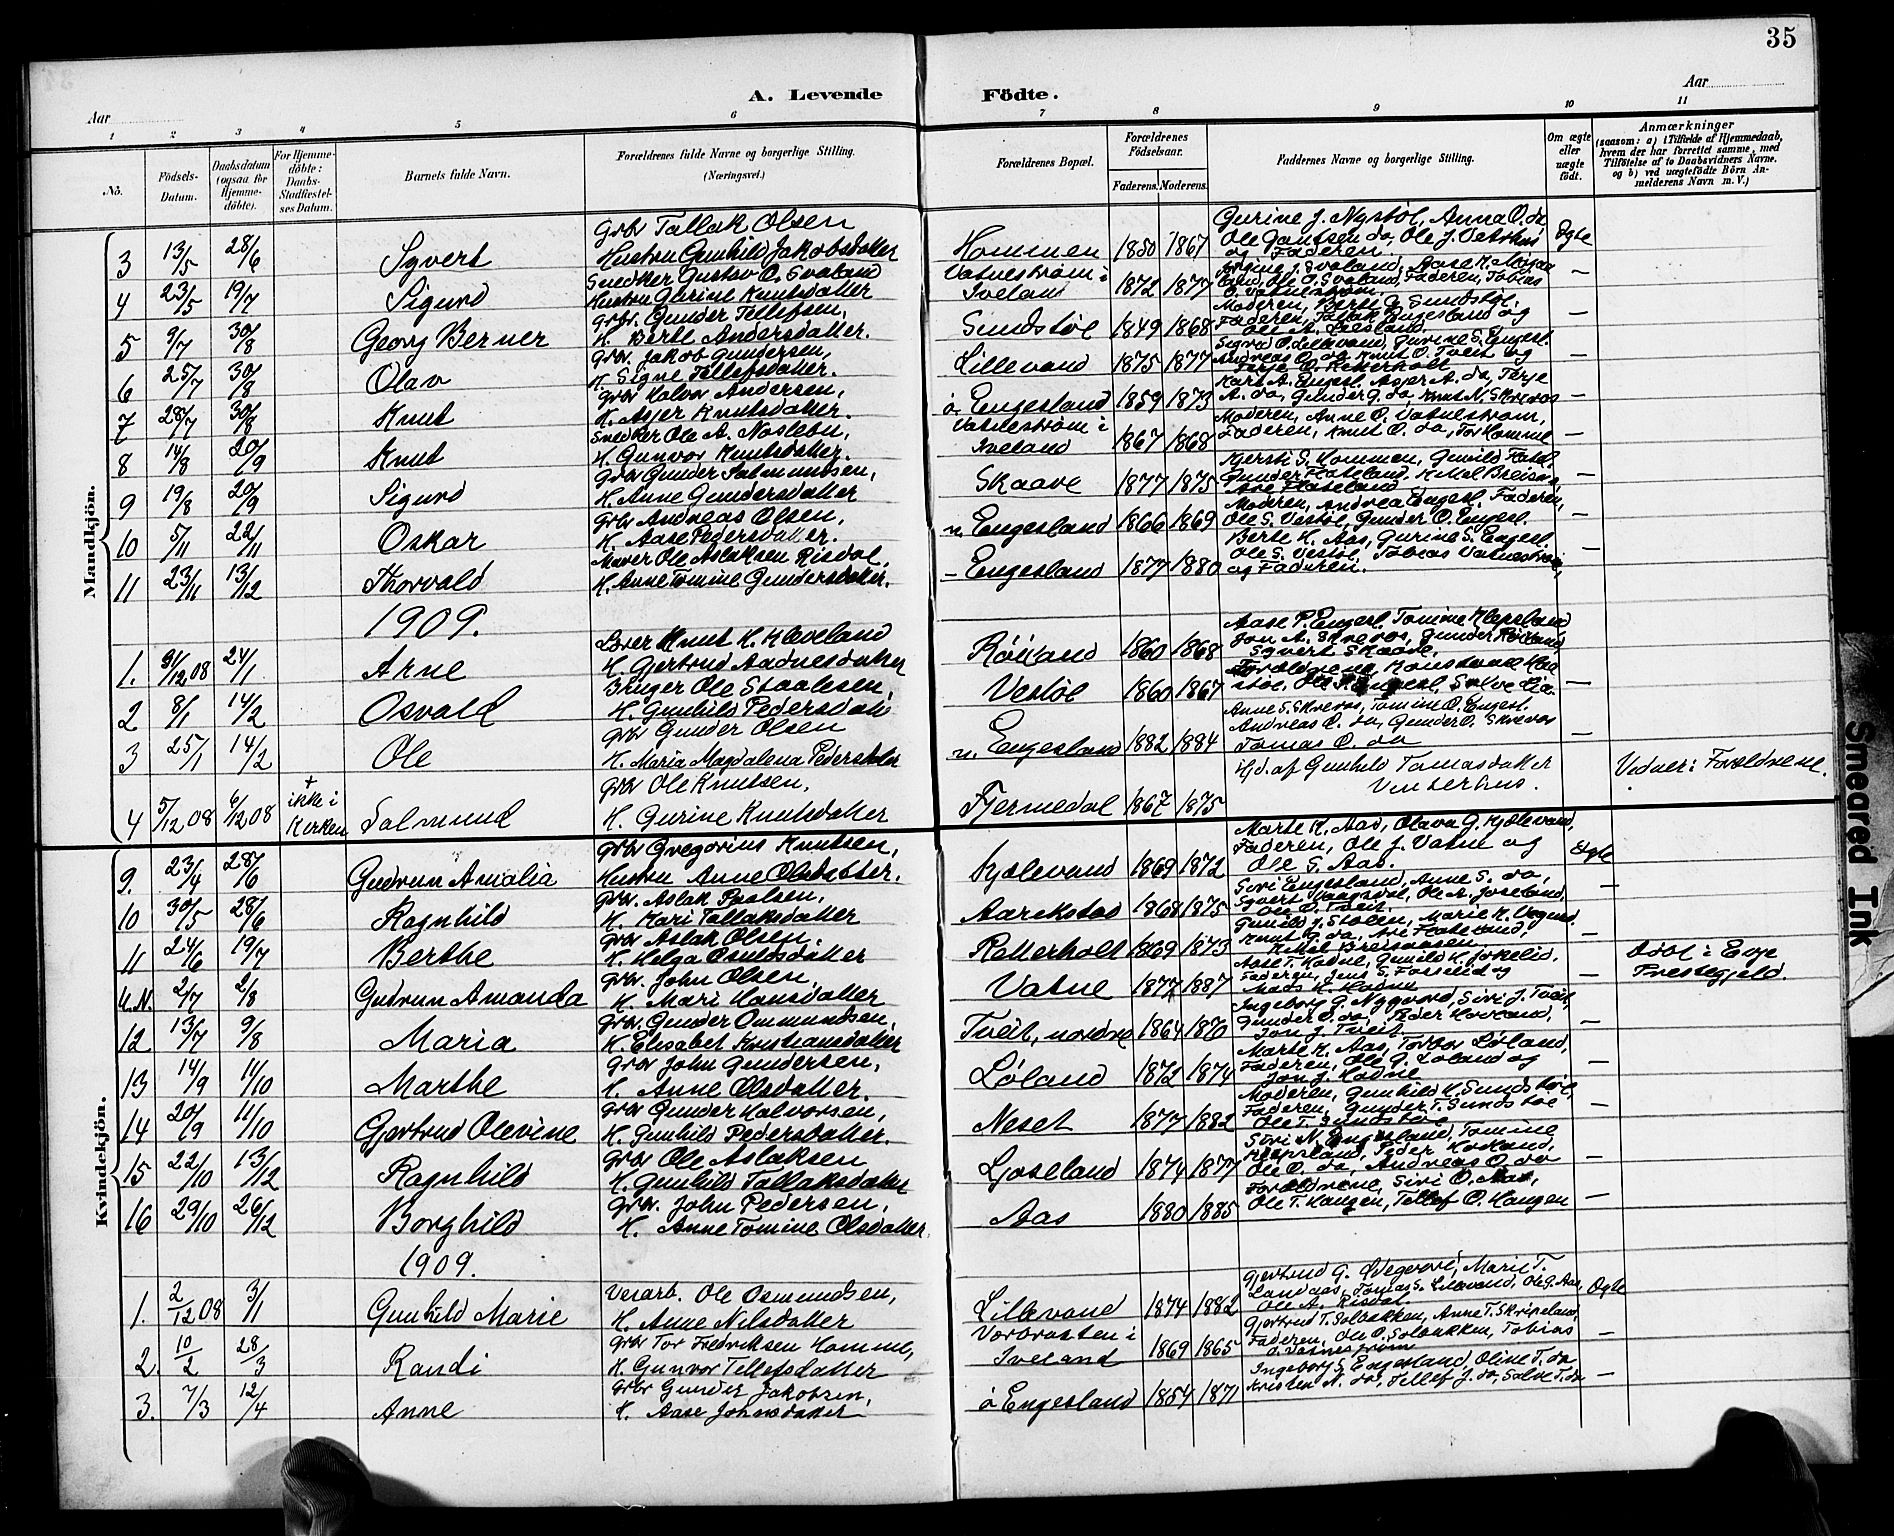 35
A. Levende Födte.
Aar
Aar
1 2 3 4 5 6 7 8 9 10 11
No.
Födsels-Datum.
Daabsdatum (ogsaa for Hjemme-döbte).
For Hjemme-döbte: Daabs-Stadfæstel-ses Datum.
Barnets fulde Navn.
Forældrenes fulde Navne og borgerlige Stilling. (Næringsvei.)
Forældrenes Bopæl.
Forældrenes Födselsaar.
Faderens. Moderens.
Faddernes Navne og borgerlige Stilling.
Om ægte eller uægte födt.
Anmærkninger
(saasom: a) i Tilfælde af Hjemmedaab, hvem der har forrettet samme, med Tilföielse af to Daabsvidners Navne. og b) ved uægtefödte Börn Anmelderens Navn m. V.)
Mandkjön.
3 13/5 28/6 Syvert Gbr Tallak Olsen Hustru Gunhild Jakobsdatter Hommen 1850 1867 Gurine J. Nystøl, Anna O. do Ole Gautsen do, Ole J. og Faderen Ægte
4 23/5 19/7 Sigurd Snedker Gustav O. Svaland Hustru Gurine Knutsdatter Vatnestrøm i Iveland 1872 1877 J. Svaland, Aase K. Ole O. Svaland, Faderen, Tobias O. Vatnestrøm —
5 9/7 30/8 Georg Berner Gbr. Gunder Tellefsen, H. Berte Andersdatter. Sundstøl 1849 1868 Moderen, Berte G. Sundstøl. Faderen, Engesland og Ole A. —
6 25/7 30/8 Olav Gbr. Jakob Gundersen, H. Signe Tellefsdatter. Lillevand 1875 1877 Sigrid O. Lillevand, Gurine S. Engesl. Andreas O. do Knut O. Tveit og Terje O. Ratterholt —
7 28/7 30/8 Knut Gbr Halvor Andersen, H. Asjer Knutsdatter. ö. Engesland 1859 1873 Kari A. Engesl. Asjer A. do, Terje A. do, Gunder G. do, Knut N. Skreros —
8 14/8 20/9 Knut Snedker Ole A. Naslebu, H. Gunvor Knutsdatter. Vatnestrøm i Iveland 1867 1868 Moderen, Anne O. Vatnestrøm, Faderen, Knut O. do, Tor Homme —
9 19/8 20/9 Sigurd Gbr Gunder Salmundsen, H. Anne Gundersdatter Skaare 1877 1875 Kjersti S. Hommen, Gunild Gunder Flateland, Are Flateland —
10 5/11 22/11 Oskar Gbr Andreas Olsen, H. Aase Pedersdatter. n. Engesland 1866 1869 Moderen, Andrea Engesl. Faderen, Ole S. Vestøl, Gunder O. Engesl. —
11 23/11 13/12 Thorvald Murer Ole Aslaksen Risdal, H. Anne Tomine Gundersdatter. — Engesland 1877 1880 Berte K. Aas, Gurine S. Engesl. Ole S. Vestøl, Tobias Vatnestrøm, og Faderen. —
1909.
1. 31/12 08 24/1 Arne Lærer Knut K. Kleveland H. Gjertrud Aadnesdatter Röiland 1860 1868 Aase P. Engesl. Tomine Klepsland Jon A. Skreros, Gunder Röiland Syvert Skaare.
2 8/1 14/2 Osvald Bruger Ole Staalesen, H. Gunhild Pedersdatt Vestøl 1860 1867 Forældrene, Ole Engesl. Salve Lia. —
3 25/1 14/2 Ole Gbr Gunder Olsen H. Maria Magdalena Pedersdatter n. Engesland 1882 1884 Anne S. Skreros, Tomine O. Engesl. Andreas O. do, Gunder O. Skreros Tomas O. do —
4 5/12 08 6/12 08 + ikke i Kirken Salmund Gbr Ole Knutsen, H. Gurine Knutsdatter Fjermedal 1867 1875 Hjd. af Gunhild Tomasdatter Vinterhus. Vidner: Forældrene.
Kvindekjön.
9. 23/4 28/6 Gudrun Amalia Gbr Gregorius Knutsen, Hustru Anne Olsdatter. Hjælevand 1869 1872 Marte K. Aas, Olava G. Hjælevand, Faderen, Ole J. Vatne og Ole S. Aas. Ægte
10 30/5 28/6 Ragnhild Gbr. Aslak Paalsen, H. Mari Tallaksdatter Aarikstad 1868 1875 Siri Engesland, Anne S. do, Syvert Haagsdal, Ole A. Joseland, Ole O. Tveit. —
11 24/6 19/7 Berthe Gbr Aslak Olsen, H. Helga Osuldsdatter Ratterholt 1869 1873 Gunild Stolen, Marie K. Knut G. do. Flateland, Ketel Breisaasen —
U.N. 2/7 2/8 Gudrun Amanda Gbr. John Olsen, H. Mari Hansdatter Vatne 1877 1887 Aase T. Hodne, Gunild H. Jokelid, Faderen, Jens S. og Mads K. Hodne — döbt i Evje Prestegjeld.
12 13/7 9/8 Maria Gbr. Gunder Ommundsen, H. Elisabet Kristiansdatter Tveit, nordre 1864 1870 Ingeborg G. Nygaard, Siri J. Tveit, Gunder O. do, Peder Hodland, Jon J. Tveit —
13 14/9 14/10 Marthe Gbr John Gundersen, H. Anne Olsdatter. Løland 1872 1874 Marte K. Aas, Torbor Løland, Faderen, Ole G. Løland og Jon J. Hodne —
14 20/9 11/10 Gjertrud Olevine Gbr Gunder Halvorsen, H. Gunhild Pedersdatter. Neset 1877 1882 Moderen, Gunhild K. Sundstøl, Faderen, Gunder T. Sundstøl Ole T. Sundstøl —
15 22/10 13/12 Ragnhild Gbr Ole Aslaksen H. Gunhild Tallaksdatter Ljoseland 1874 1877 Siri N. Engesland, Tomine Klepsland, Peder Hodland, Ole O. do, Andreas O. do —
16 29/10 26/12 Borghild Gbr. John Pedersen, H. Anne Tomine Olsdatter. Aas 1880 1885 Forældrene, Siri O. Aas, Ole T. Haugen, Tellef O. Haugen —
1909.
1. 2/12 08 3/1 Gunhild Marie Veiarb. Ole Osmundsen, H. Anne Nilsdatter Lillevand 1874 1882 Gjertrud G. Ødegaard, Marie T. Landaas, Tomas S. Lillevand, Ole G. Aas, Ole A. Risdal Ægte
2. 10/2 28/3 Randi Gbr Tor Fredriksen Homme, H. Gunvor Tellefsdatter i Iveland 1869 1865 Gjertrud T. Solbakken, Anne T. Skripeland, Faderen, Ole O. Solbakken, Tobias O. Vatnestrøm —
3. 7/3 12/4 Anne Gbr Gunder Jakobsen, H. Aase Johnsdatter ö Engesland 1854 1871 Ingeborg S. Engesland, Oline T. do Kristen N. do, Tellef J. do, Salve T. do —
Smeared Ink